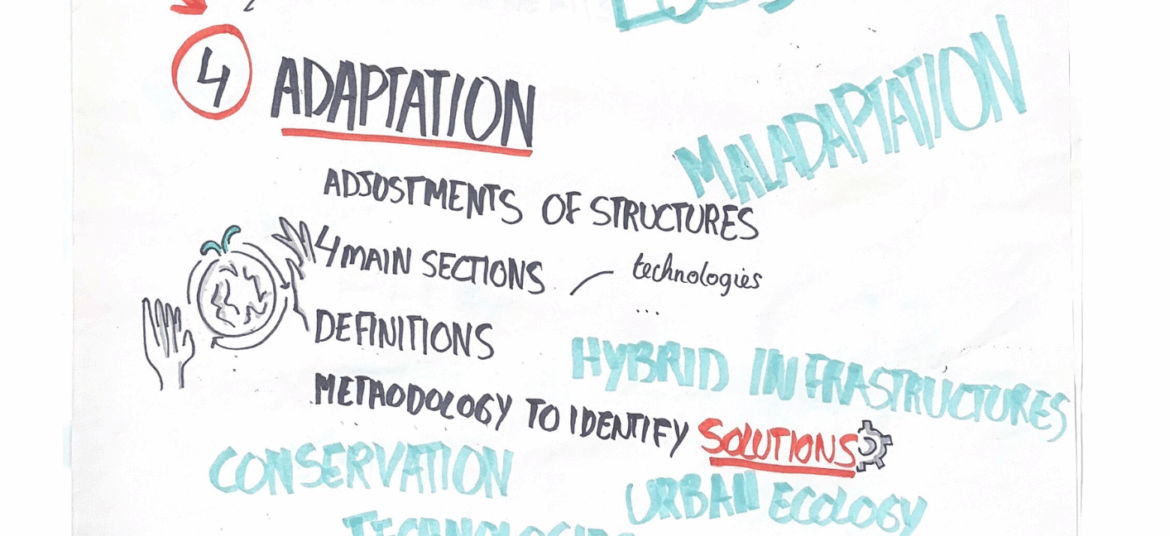 4 ADAPTATION
MALADAPTATION
ADJUSTMENTS OF STRUCTURES
4 MAIN SECTIONS
technologies
...
DEFINITIONS
HYBRID INFRASTRUCTURES
METHODOLOGY TO IDENTIFY SOLUTIONS
CONSERVATION
URBAN ECOLOGY